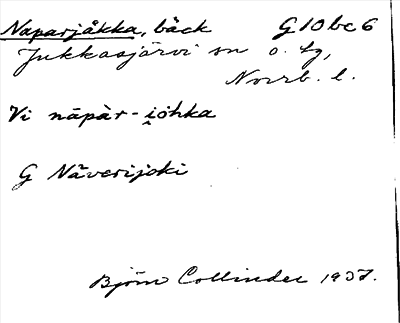 Naparjåkka, bäck G10bc6
Jukkasjärvi sn o. tg,
Norrb. l.
Vi nāpàr-i̯åhka
G Näverijoki
Björn Collinder 1937.